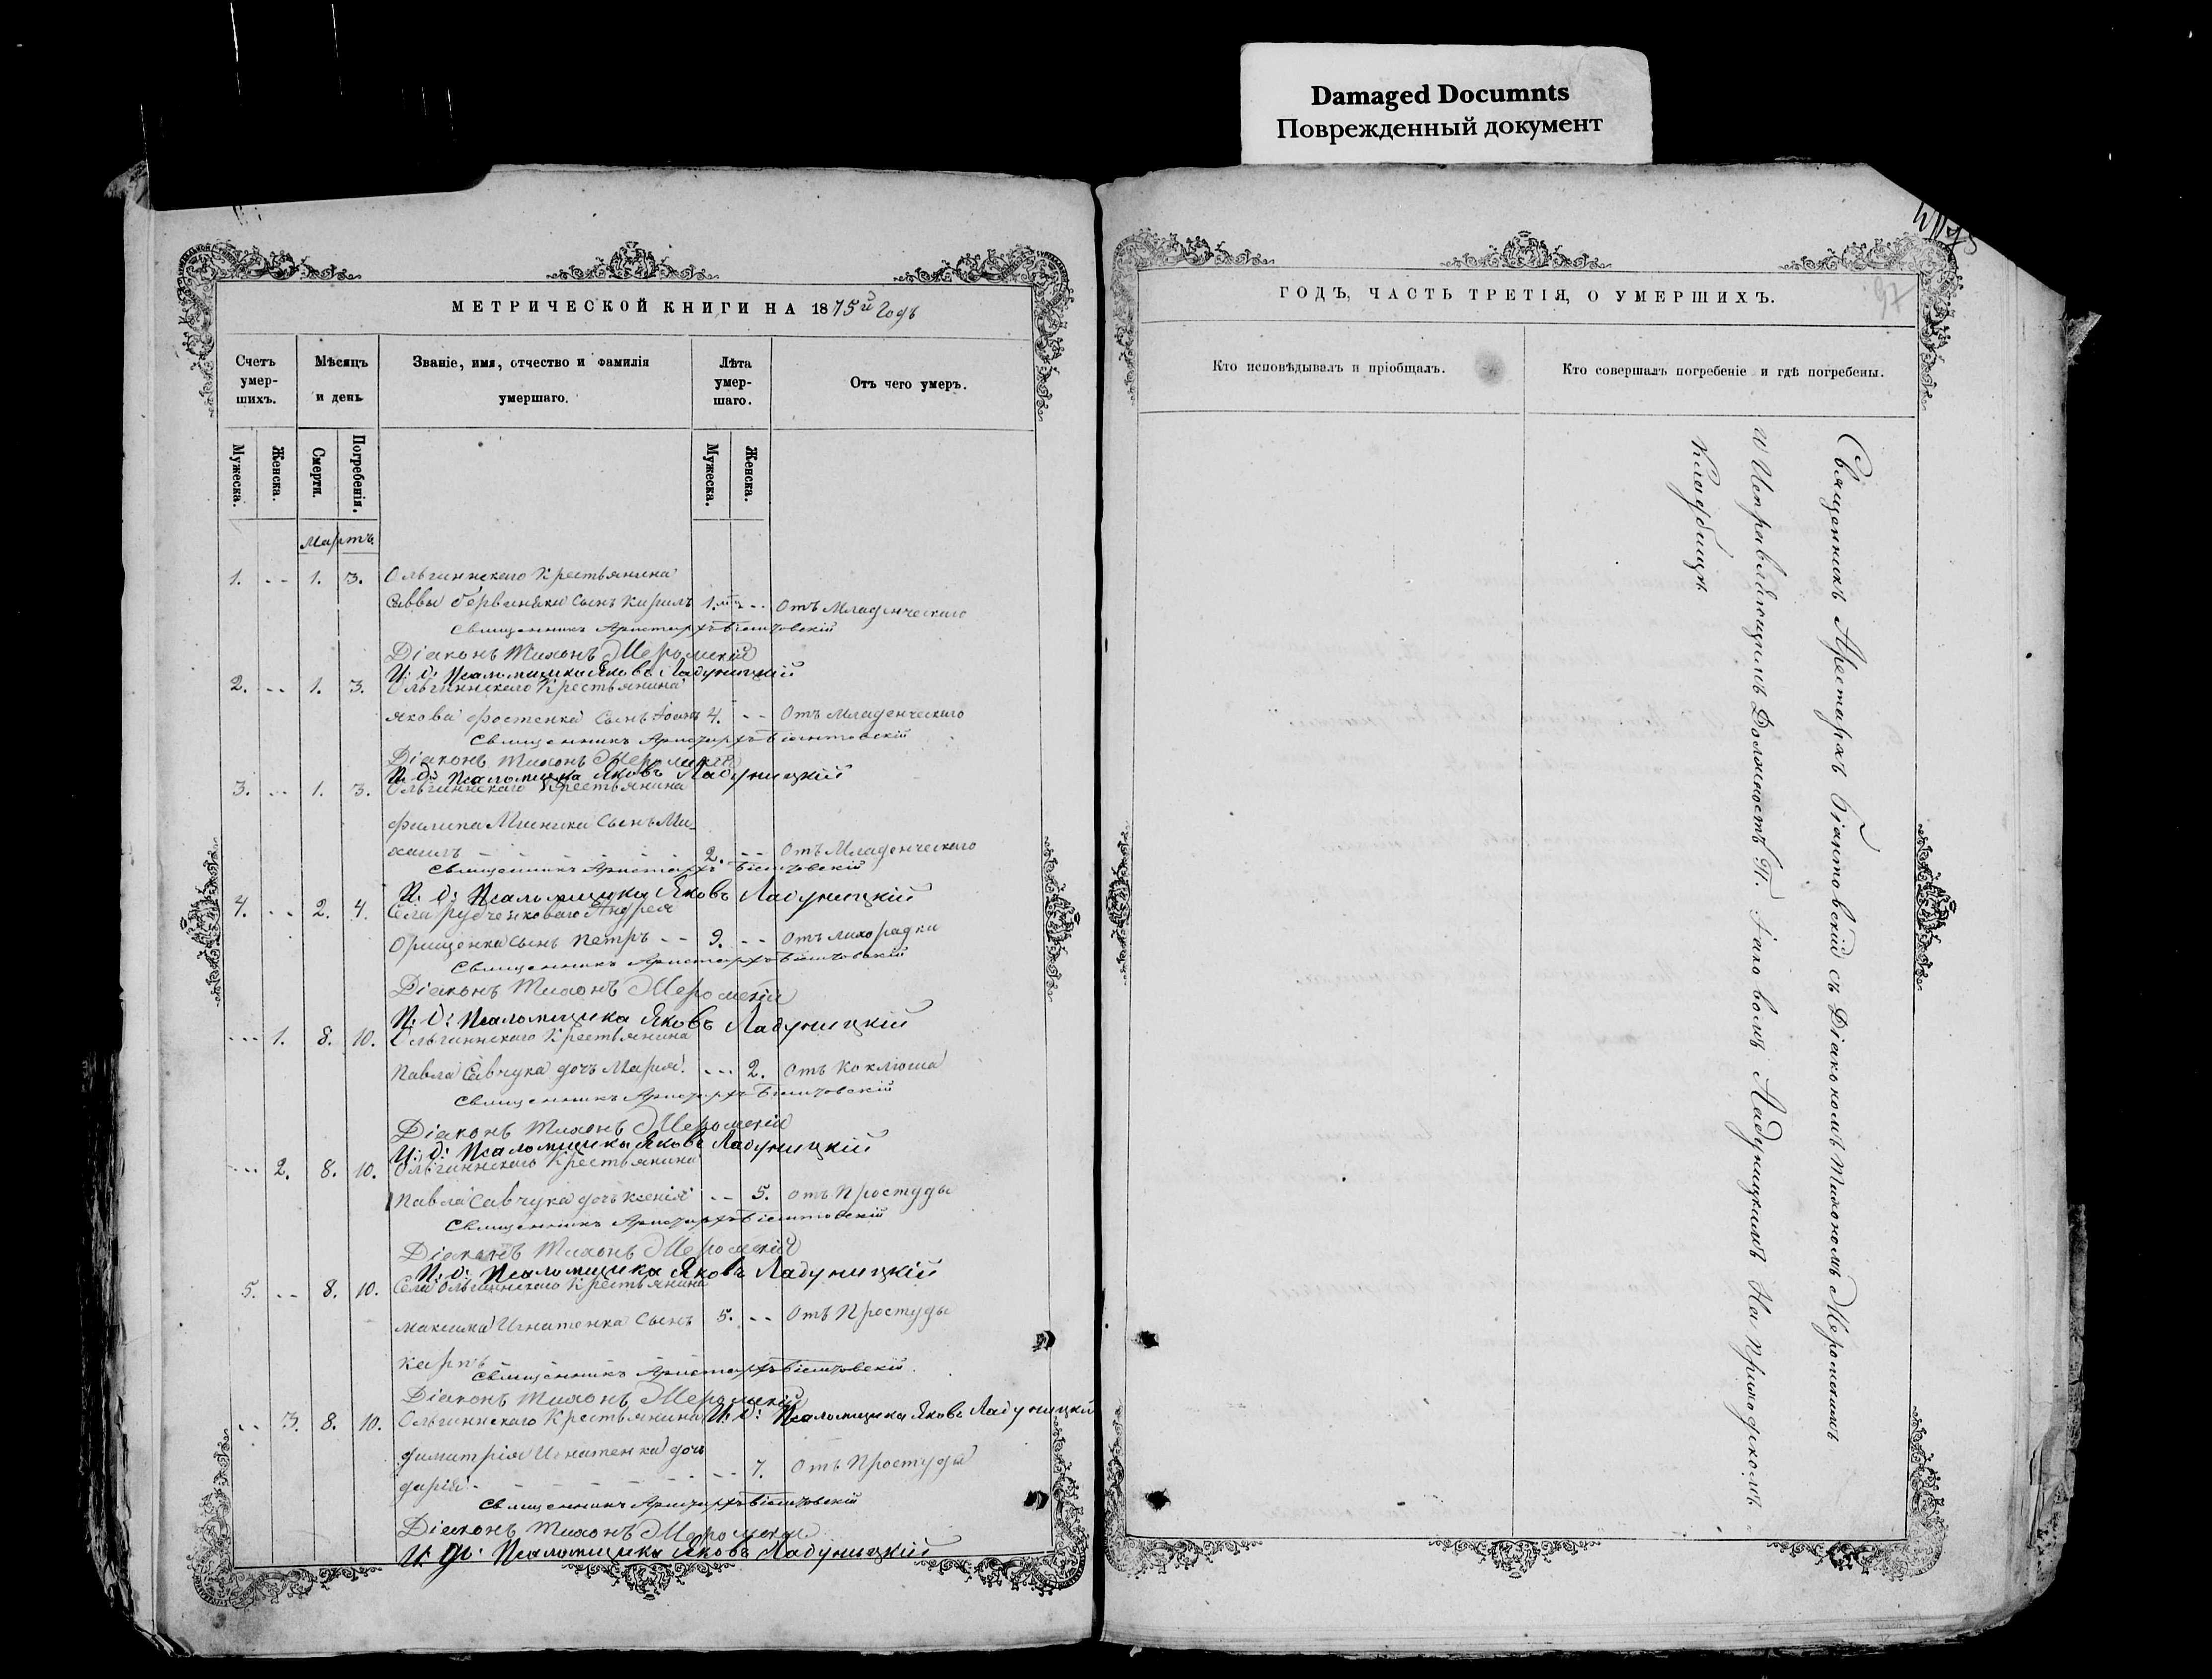 Damaged Documnts
Поврежденный документ
МЕТРИЧЕСКОЙ КНИГИ НА 1875й Годъ
Счетъ умер-шихъ.
Мѣсяцъ и день
Званіе, имя, отчество и фамилія умершаго.
Лѣта умер-шаго.
Отъ чего умеръ.
Мужеска.
Женска.
Смерти.
Погребенія.
Мужеска.
Женска.
Мартъ
1. -- 1. 3. Ольгинскаго Крестьянина
Саввы сынъ Кирилъ 1. -- Отъ Младенческаго
Священникъ Аристархъ Біянтовскій
Діаконъ Тихонъ Меромскій
И: д: Псаломщика Яковъ Ладуницкій
2. -- 1. 3. Ольгинскаго Крестьянина
Якова Фостенка сынъ 4. -- Отъ Младенческаго
Священникъ Аристархъ Біянтовскій
Діаконъ Тихонъ Меромскій
И: д: Псаломщика Яковъ Ладуницкій
3. -- 1. 3. Ольгинскаго Крестьянина
Филипа сынъ Ми-
хаилъ 2. -- Отъ Младенческаго
Священникъ Аристархъ Біянтовскій
И: д: Псаломщика Яковъ Ладуницкій
4. -- 2. 4. Села Андрея
Орищенка сынъ Петръ -- 9. -- Отъ лихорадки
Священникъ Аристархъ Біянтовскій
Діаконъ Тихонъ Меромскій
И: д: Псаломщика Яковъ Ладуницкій
--- 1. 8. 10. Ольгинскаго Крестьянина
Павла Савчука дочь Марія --- 2. Отъ Коклюша
Священникъ Аристархъ Біянтовскій
Діаконъ Тихонъ Меромскій
И: д: Псаломщика Яковъ Ладуницкій
--- 2. 8. 10. Ольгинскаго Крестьянина
Павла Савчука дочь Ксенія -- 5. Отъ Простуды
Священникъ Аристархъ Біянтовскій
Діаконъ Тихонъ Меромскій
И: д: Псаломщика Яковъ Ладуницкій
5. -- 8. 10. Села Ольгинскаго Крестьянина
Максима Игнатенка Сынъ 5. -- Отъ Простуды
Карпъ
Священникъ Аристархъ Біянтовскій
Діаконъ Тихонъ Меромскій
-- 3. 8. 10. Ольгинскаго Крестьянина И: д: Псаломщика Яковъ Ладуницкій
Димитрія Игнатенка дочь
Дарія -- 7. Отъ Простуды
Священникъ Аристархъ Біянтовскій
Діаконъ Тихонъ Меромскій
И: д: Псаломщика Яковъ Ладуницкій
ГОДЪ, ЧАСТЬ ТРЕТІЯ, О УМЕРШИХЪ.
97
Кто исповѣдывалъ и пріобщалъ.
Кто совершалъ погребеніе и гдѣ погребены.
Священникъ Аристархъ Біянтовскій съ Діакономъ Тихономъ Меромскимъ
и Исправляющимъ Должность П. Іаковомъ Ладуницкимъ На Приходскомъ
Кладбищѣ